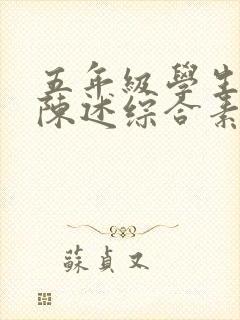 五年級學生
陳述綜合素
蘇貞又